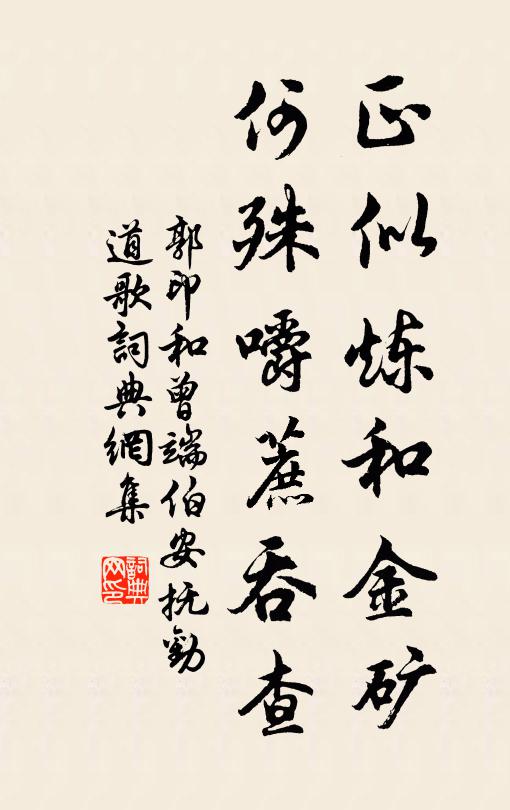 正似炼和金矿
何殊嚼蔗吞查
郭印和曾端伯安抚劝
道歌詞典網集
詞典
网印